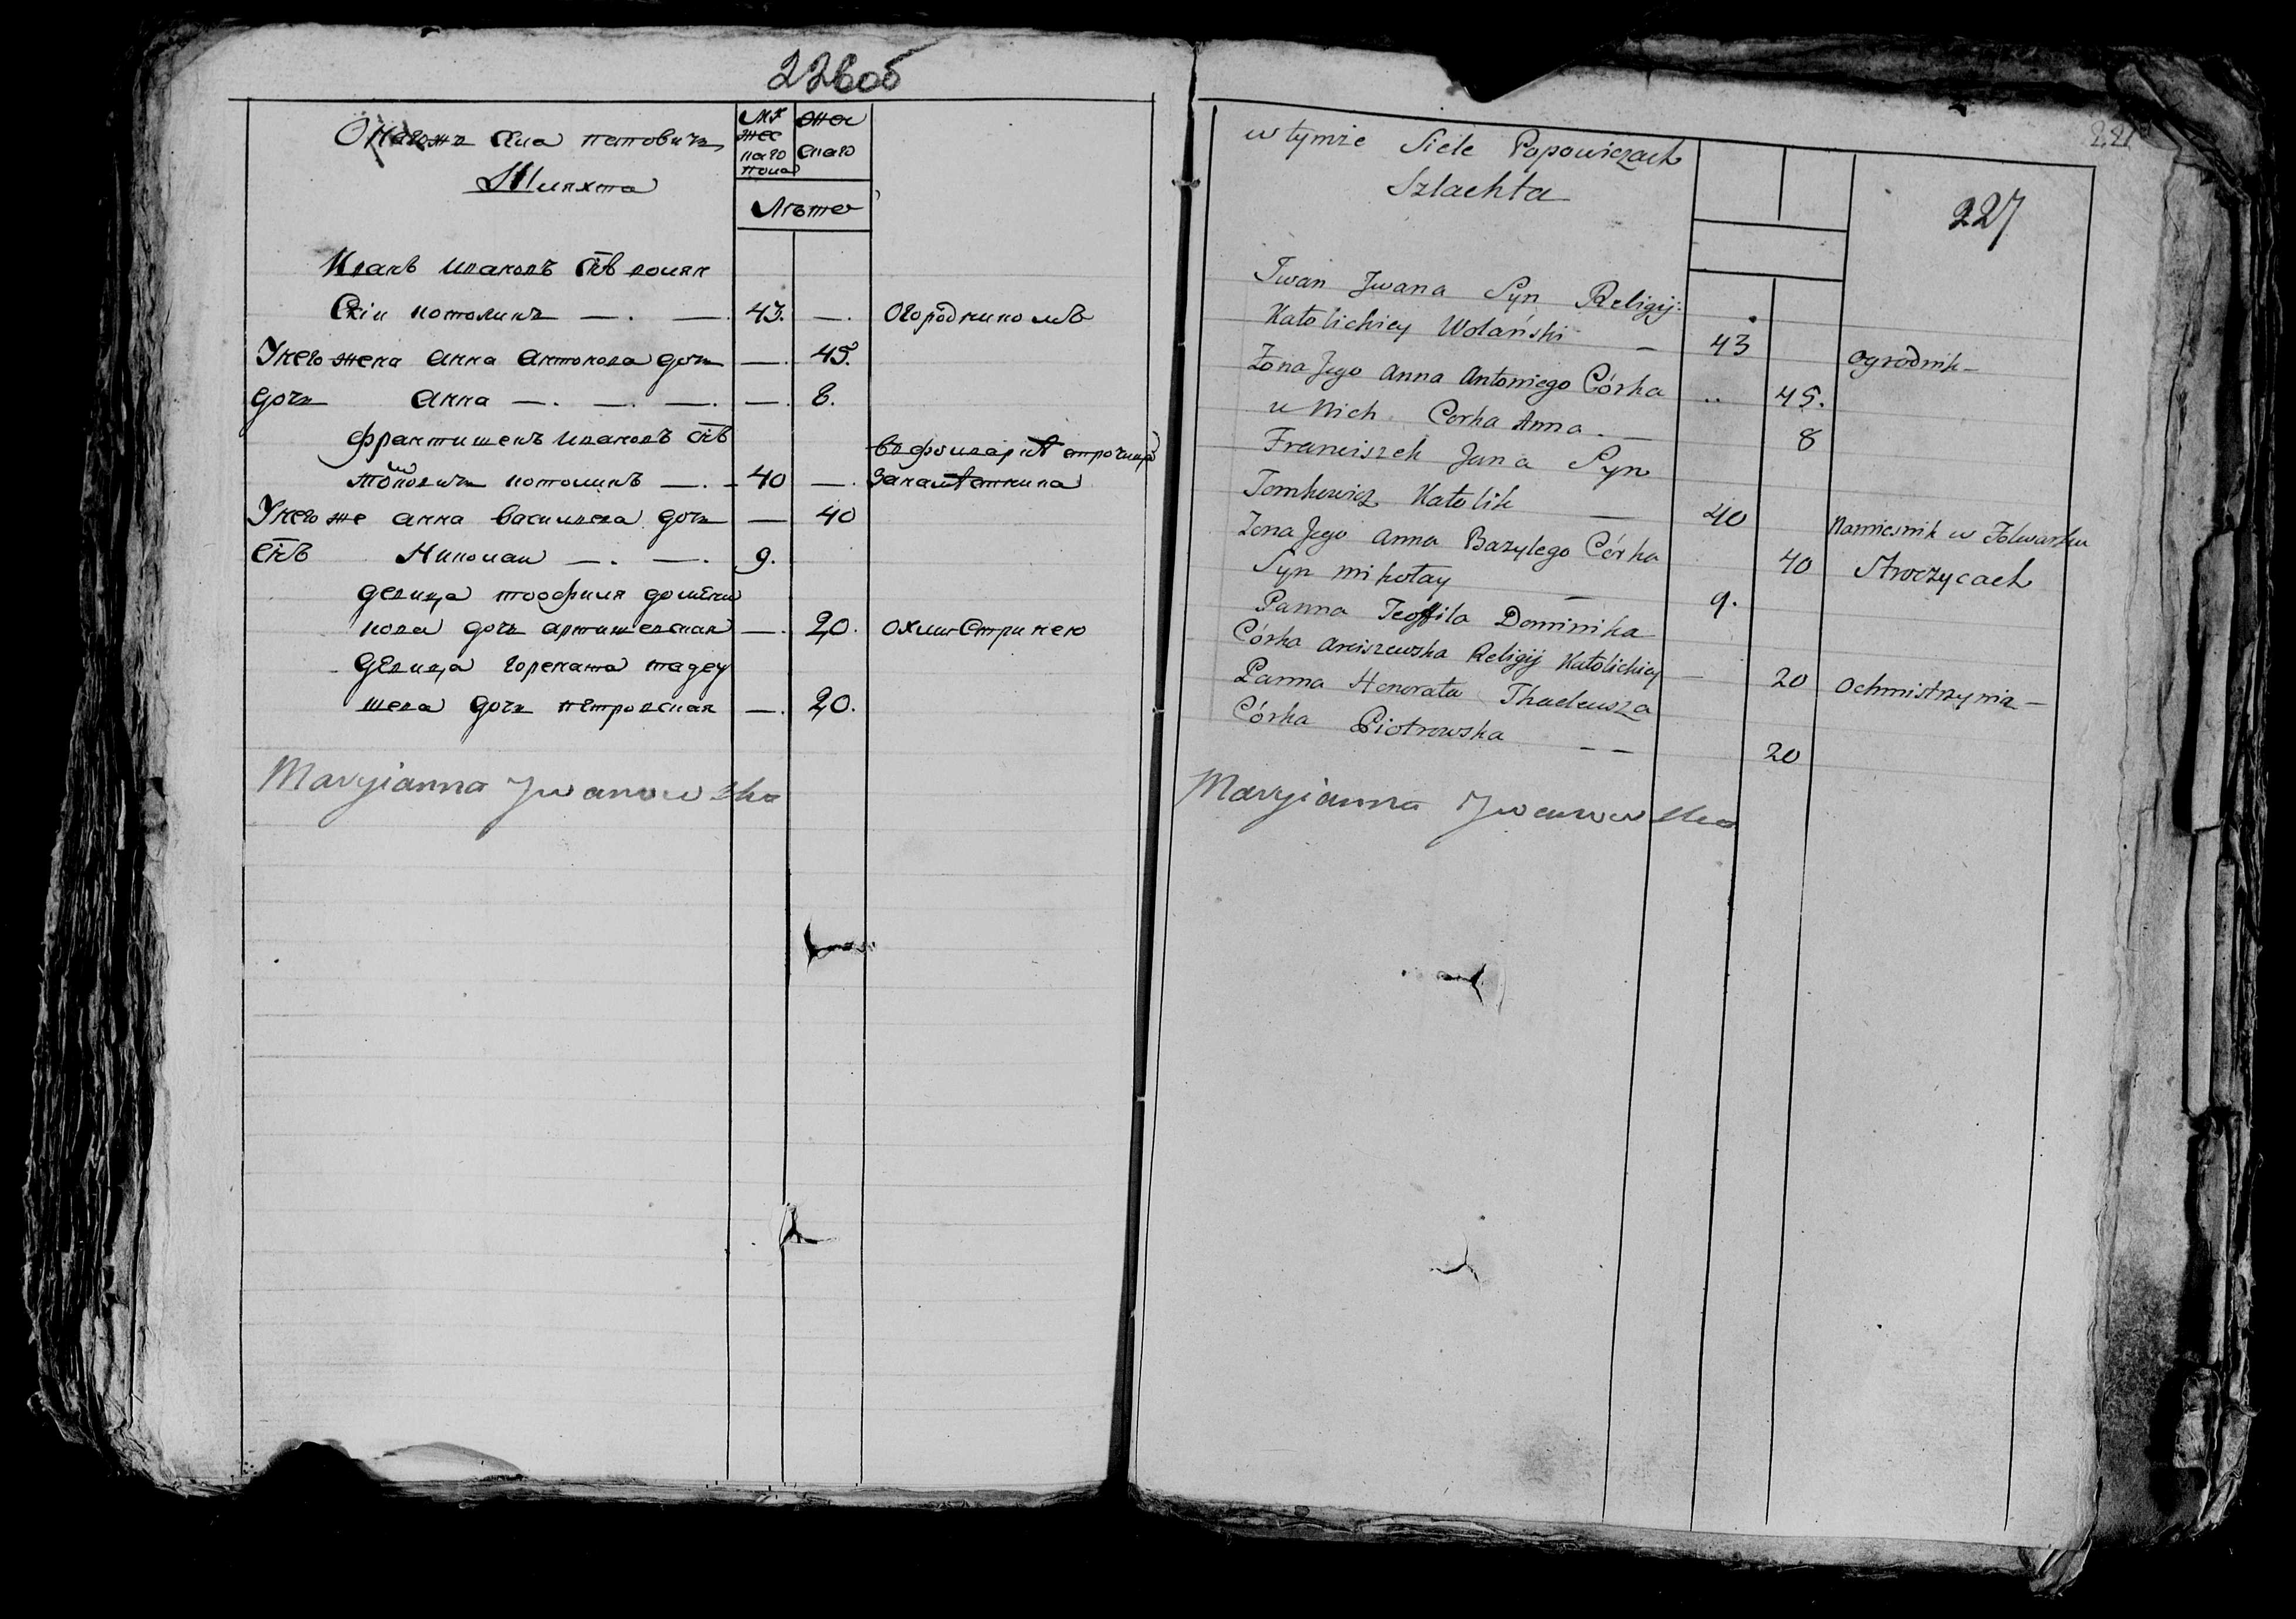 226об
Онагожъ села патовичъ
Шляхта
Му
жес
каго
пола
жен
скаго
Лѣта
Иванъ ивановъ сн҃ъ волян
скїи католикъ — . — 43. — . огородникомъ
Унего жена анна антонова дочь — . 45.
дочь анна — . — . — . — . 8.
францишекъ ивановъ сн҃ъ
томковичъ католикъ — . 40 — .
въ фолваркѣ строчицѣ
занамѣстника
Унего же анна василева дочь — 40
сн҃ъ Николаи — . — . 9.
девица теофиля домини
кова дочь арцишевская — . 20. охмистринею
девица гореката тадеу
шева дочь петровская — . 20.
Maryianna Jwanowska
227
w tymże Siele Popowiczach
Szlachta
227
Iwan Jwana Syn Religij:
Katolickiey Wolański — 43 ogrodnik —
Żona Jego Anna Antoniego Córka .. 45.
u Nich Corka Anna . — 8
Franciszek Jana Syn
Tomkowicz Katolik — 40 Namiesnik w Folwarku
Żona Jego Anna Bazylego Córka 40 Stroczycach
Syn mikołay — 9.
Panna Teofila Dominika
Córka Arciszewska Religij Katolickiey — 20 Ochmistrzynia —
Panna Honorata Thadeusza
Córka Piotrowska — — 20
Maryianna Jwanowska